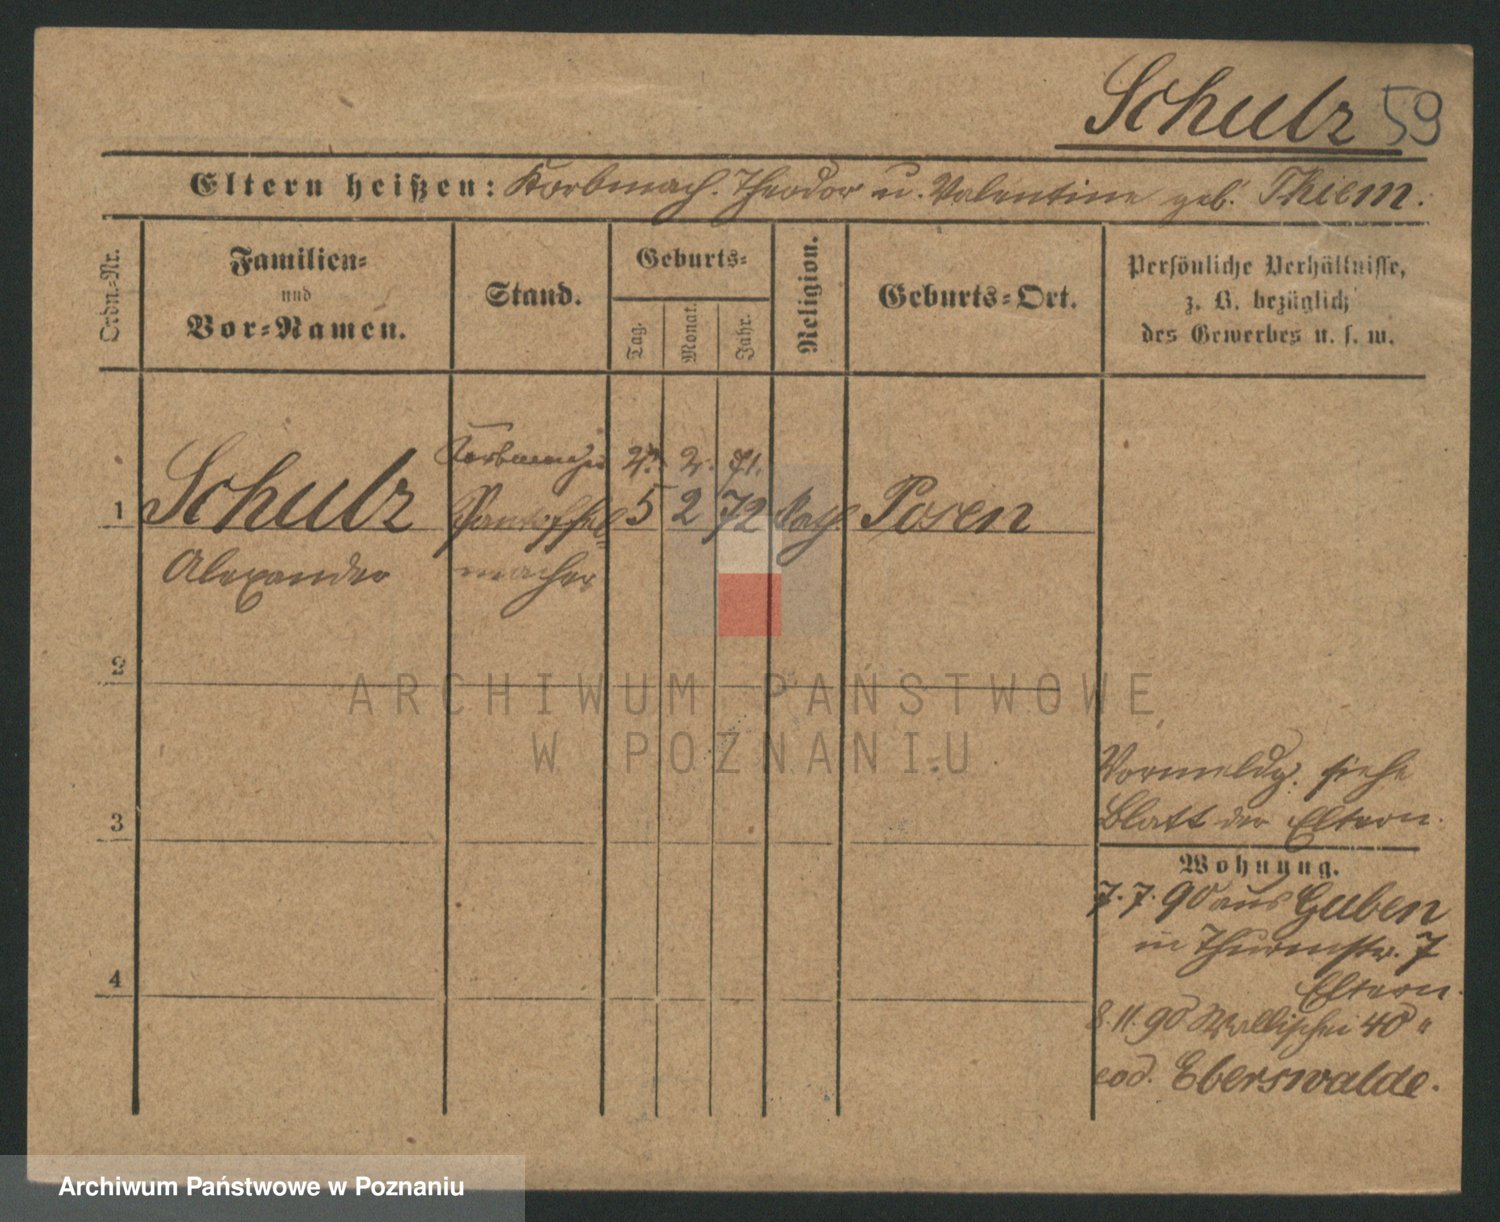 Schulz 59
Eltern heißen: Korbmach. Theodor u. Valentine geb. Thiem.
Ordn.-Nr.
Familien-
und
Vor-Namen.
Stand.
Geburts-
Tag.
Monat.
Jahr.
Religion.
Geburts-Ort.
Persönliche Verhältnisse,
z. B. bezüglich
des Gewerbes u. s. w.
Korbmacher 2. 71.
1 Schulz Pantoffel= 5 2 72 kath Posen
Alexander macher
2
3
4
Vormeldg. siehe
Blatt der Eltern.
Wohnung.
7. 7. 90 aus Guben
in Thurmstr. 7
Eltern.
8. 11. 90 Wallischei 40 "
eod. Eberswalde.
ARCHIWUM PAŃSTWOWE
W POZNANIU
Archiwum Państwowe w Poznaniu